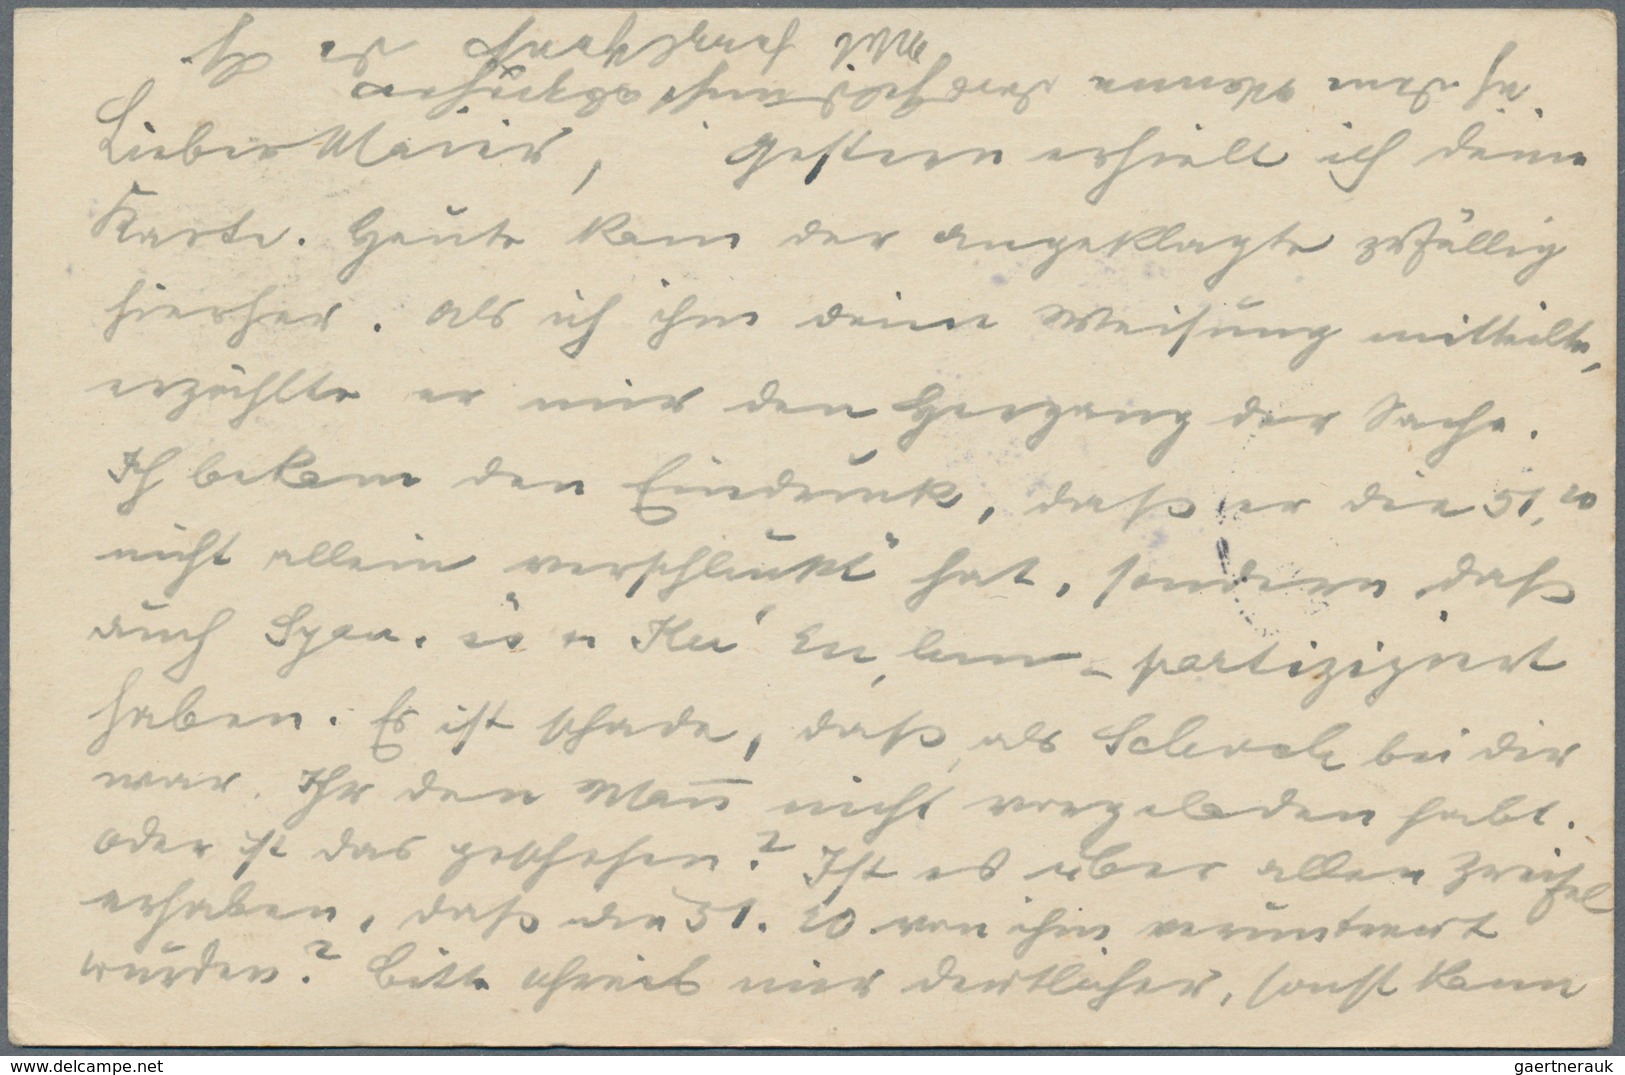 Lieber Maier, Gestern erhielt ich deine
Karte. Heute kam der Angeklagte zufällig
hierher. Als ich ihm deine Weisung mitteilte,
erzählte er mir den Hergang der Sache.
Ich bekam den Eindruck, daß er die 51,20
nicht allein "verschluckt" hat, sondern daß
auch partizipiert
haben. Es ist schade, daß, als Schock bei dir
war, Ihr den Mann nicht vorgeladen habt.
Oder ist das geschehen? Ist es über allen Zweifel
erhaben, daß die 51.20 von ihm veruntreut
wurden? Bitte schreib mir deutlicher, sonst kann
ich dem Manne das Geld nicht abziehen
Mit herzl. Gruß
gaertnerauk delcampe.net